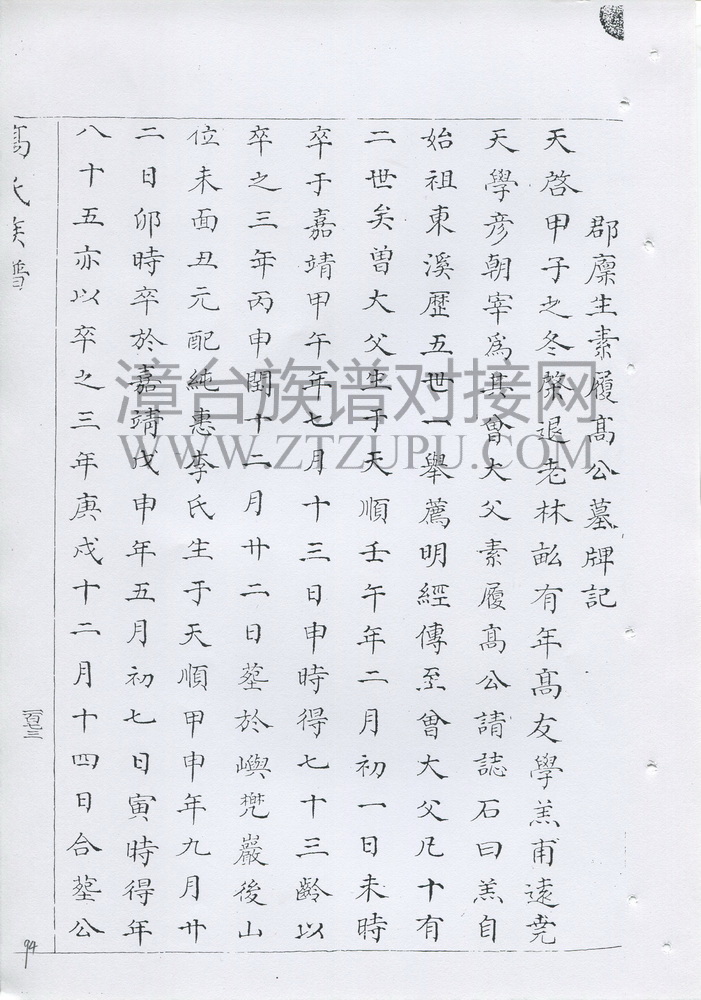 郡廪生素履髙公墓牌記
天啓甲子之冬棨退老林畝有年髙友學羔甫遠堯
天學彦朝宰爲其曾大父素履髙公請誌石曰羔自
始祖東溪歷五世一舉薦明經傳至曾大父凡十有
二世矣曾大父生于天順壬午年二月初一日未時
卒于嘉靖甲午年七月十三日申時得七十三齡以
卒之三年丙申閏十二月廿二日塟於嶼兠巖後山
位未面丑元配純惠李氏生于天順甲申年九月廿
二日卯時卒於嘉靖戊申年五月初七日寅時得年
八十五亦以卒之三年庚戌十二月十四日合塟公
髙氏族譜
一百七三
94
漳台族谱对接网
WWW.ZTZUPU.COM